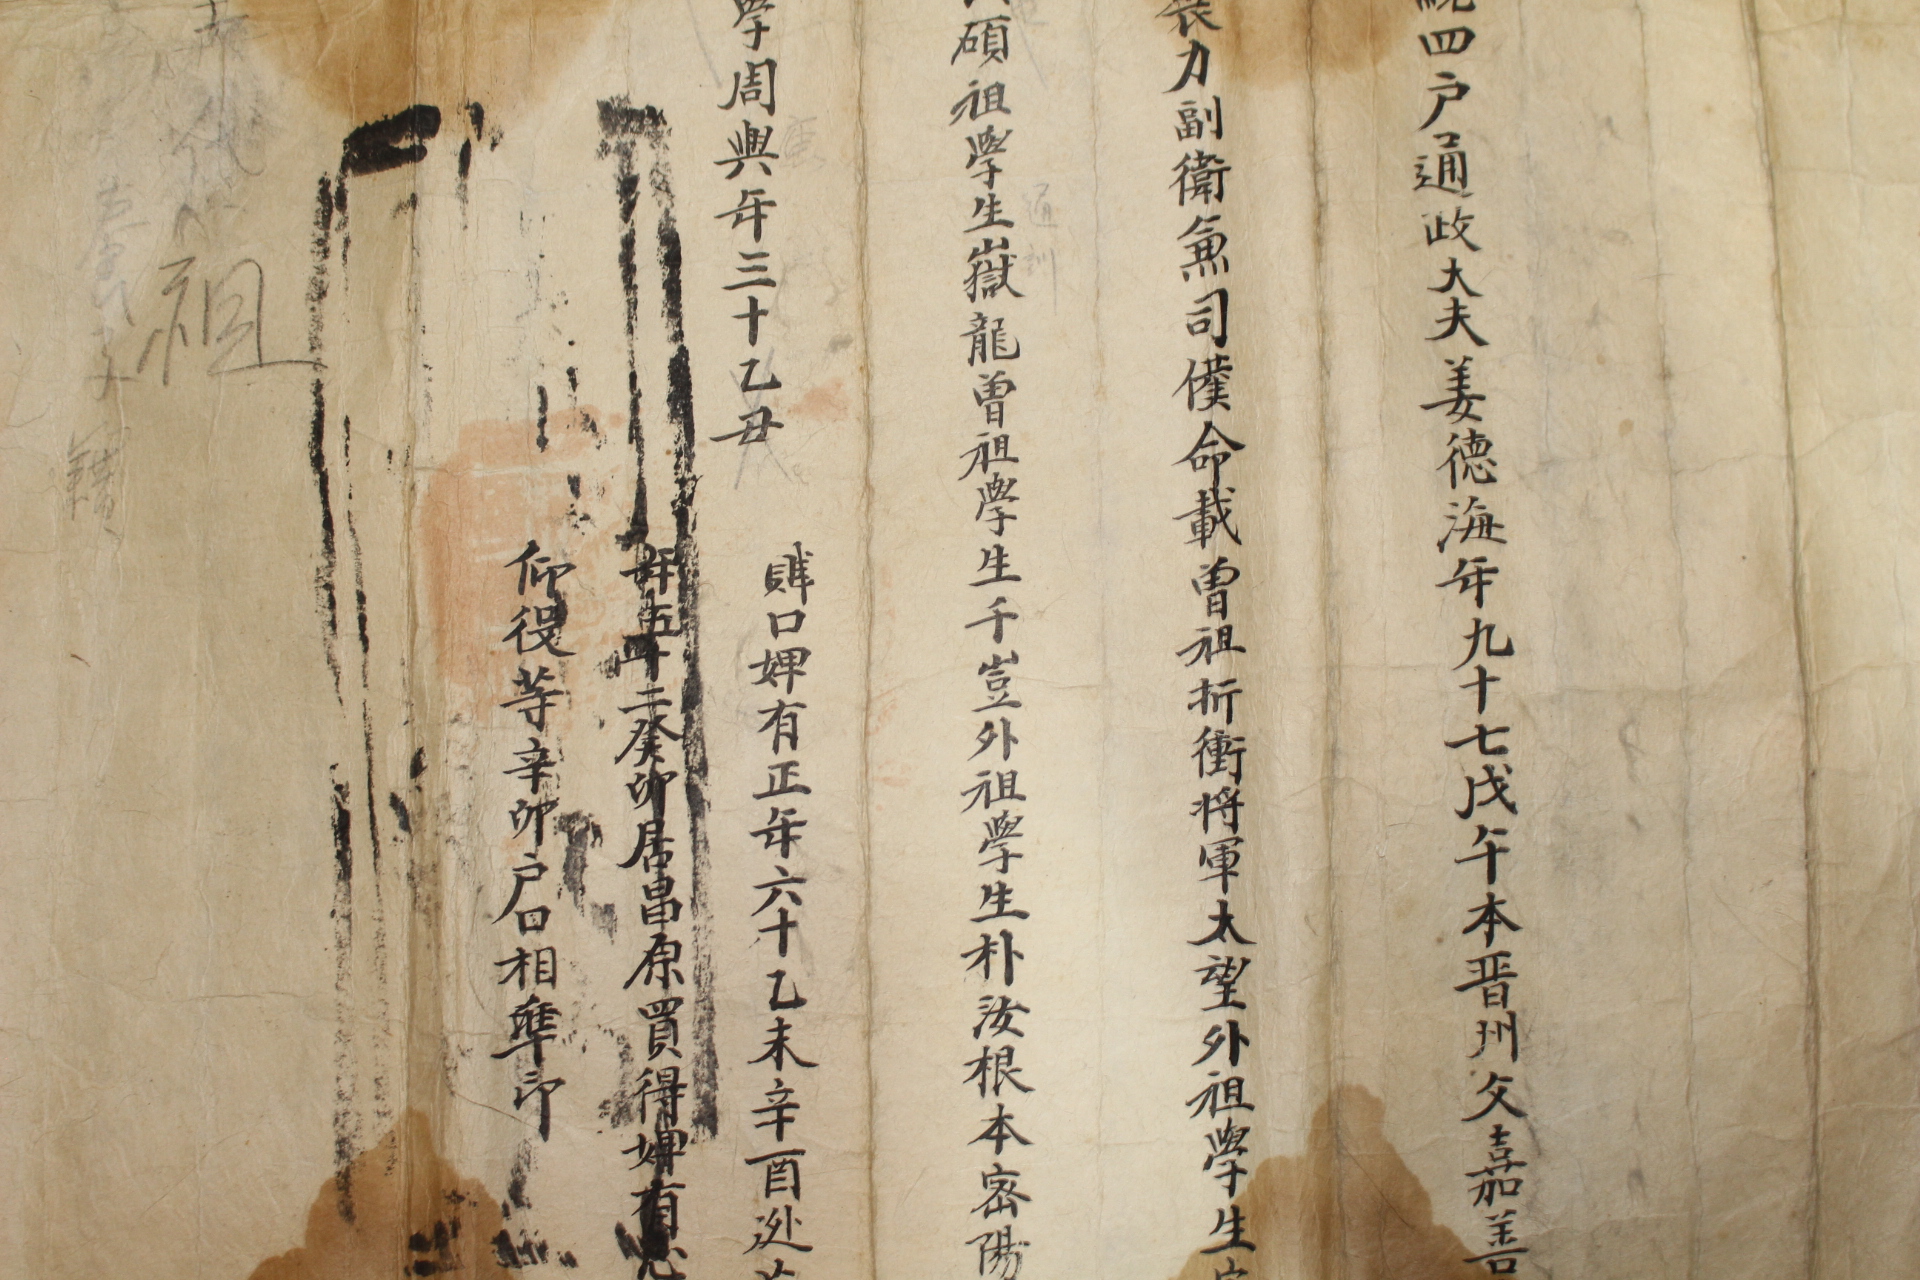 統四戶通政大夫姜德海年九十七戊午本晋州父嘉善
力副衛兼司僕命載曾祖折衝将軍太望外祖學生
碩祖學生嶽龍曾祖學生千豈外祖學生朴汝根本密陽
學周興年三十乙丑
口婢有正年六十乙未辛酉逃
五十二癸卯居昌原買得婢有
仰役等辛卯戶口相準印
祖